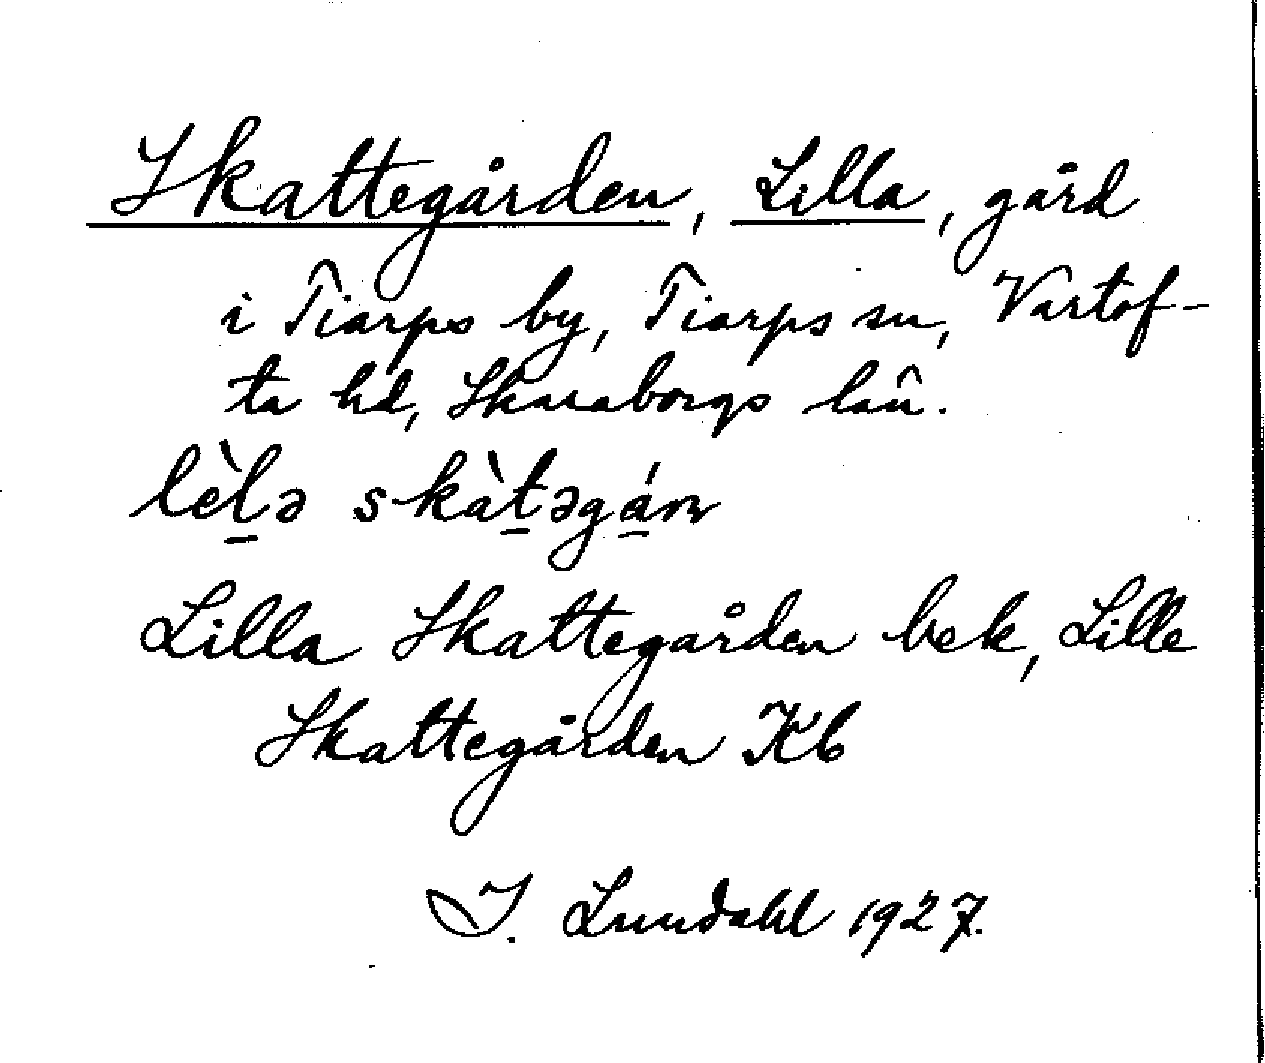 Skattegården, Lilla, gård
i Tiarps by, Tiarps sn, Vartof-
ta hd, Skaraborgs län.
lèl̠ə skàt̠əgá̠rn
Lilla Skattegården bek, Lille
Skattegården Kb
I. Lundahl 1927.